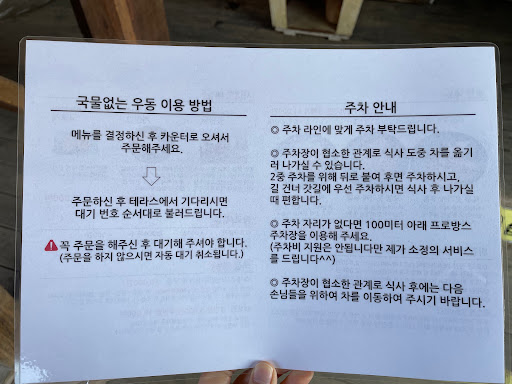 국물없는 우동 이용 방법
메뉴를 결정하신 후 카운터로 오셔서
주문해주세요.
주문하신 후 테라스에서 기다리시면
대기 번호 순서대로 불러드립니다.
꼭 주문을 해주신 후 대기해 주셔야 합니다.
(주문을 하지 않으시면 자동 대기 취소됩니다.)
주차 안내
◎ 주차 라인에 맞게 주차 부탁드립니다.
◎ 주차장이 협소한 관계로 식사 도중 차를 옮기
러 나가실 수 있습니다.
2중 주차를 위해 뒤로 붙여 후면 주차하시고,
길 건너 갓길에 우선 주차하시면 식사 후 나가실
때 편합니다.
◎ 주차 자리가 없다면 100미터 아래 프로방스
주차장을 이용해 주세요.
(주차비 지원은 안됩니다만 제가 소정의 서비스
를 드립니다^^)
◎ 주차장이 협소한 관계로 식사 후에는 다음
손님들을 위하여 차를 이동하여 주시기 바랍니다.